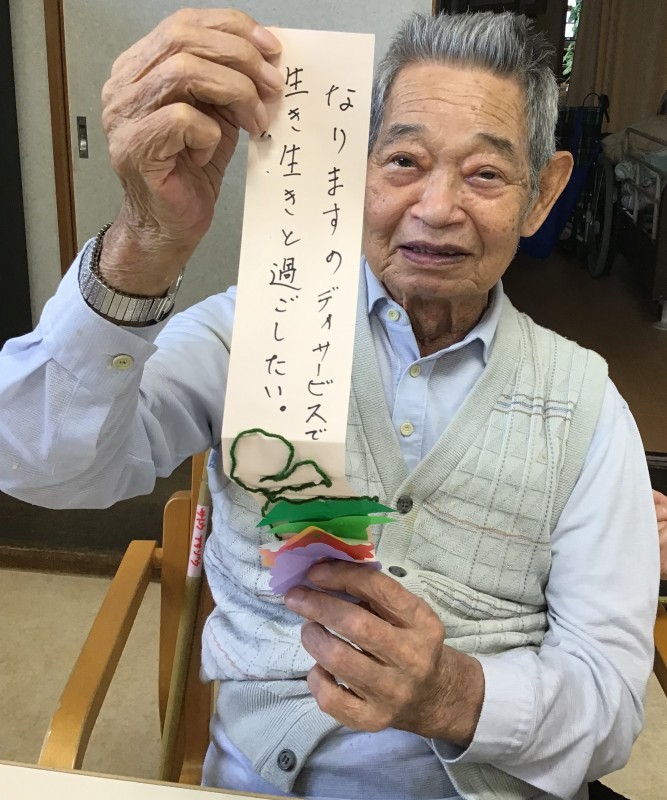 なりますのディサービスで
生き生きと過ごしたい。